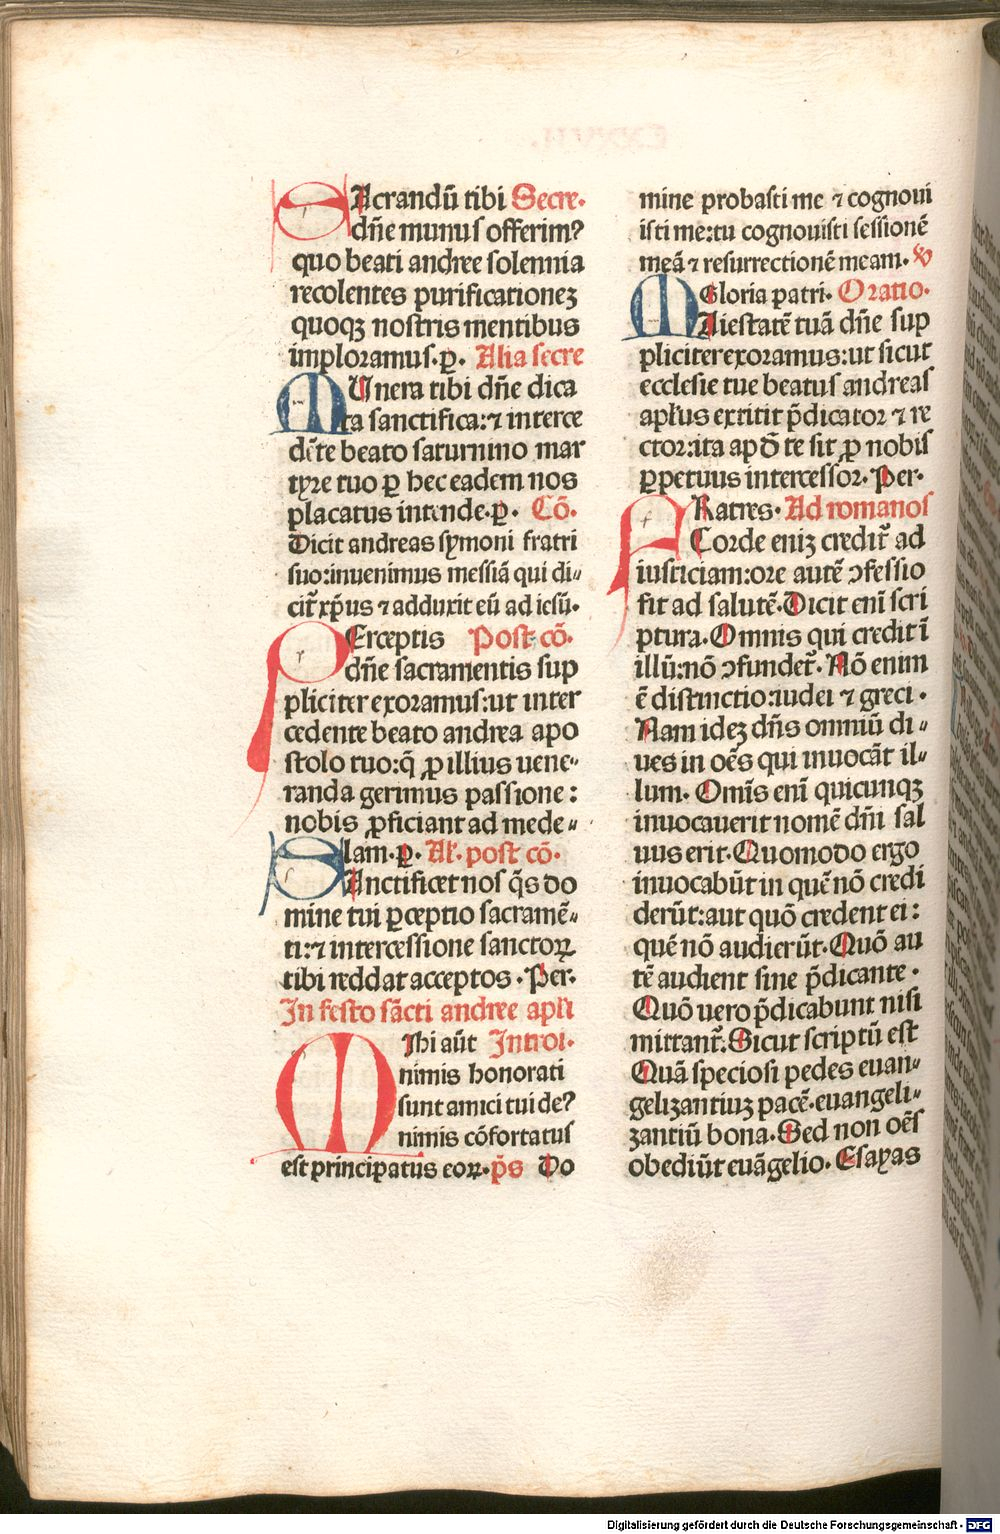 SAcrandū tibi Secre.
dn̄e munus offerimꝰ
quo beati andree solennia
recolentes purificationeꝫ
quoqꝫ nostris mentibus
imploramus. ꝑ. Alia secre
MUnera tibi dn̄e dica
ta sanctifica: ⁊ interce
dēte beato saturnino mar
tyre tuo ꝑ hec eadem nos
placatus intende. ꝑ. Cō.
Dicit andreas symoni fratri
suo: inuenimus messiā qui di⸗
cit᷑ xp̄us ⁊ adduxit eū ad iesū.
PErceptis Post cō.
dn̄e sacramentis sup
pliciter exoramus: ut inter
cedente beato andrea apo
stolo tuo: q̄ ꝓ illius uene⸗
randa gerimus passione:
nobis ꝓficiant ad mede⸗
lam. ꝑ. Al'. post cō.
SAnctificet nos q̄s do
mine tui ꝑceptio sacramē⸗
ti: ⁊ intercessione sanctoꝝ
tibi reddat acceptos. Per.
In festo sācti andree apl'i
MIhi aūt Introi.
nimis honorati
sunt amici tui deꝰ
nimis cōfortatus
est principatus eoꝝ. p̄s Do
mine probasti me ⁊ cognoui
isti me: tu cognouisti sessionē
meā ⁊ resurrectionē meam. ℣
Gloria patri. Oratio.
MAiestatē tuā dn̄e sup
pliciter exoramus: ut sicut
ecclesie tue beatus andreas
apl'us extitit p̄dicator ⁊ re
ctor: ita apd̄ te sit ꝓ nobis
ꝑpetuus intercessor. Per.
FRatres. Ad romanos
Corde eniꝫ credit᷑ ad
iusticiam: ore autē ↄfessio
fit ad salutē. Dicit eni᷑ scri
ptura. Omnis qui credit ī
illū: nō ↄfundet᷑. Nō enim
ē distinctio: iudei ⁊ greci.
Nam ideꝫ dn̄s omniū di⸗
ues in oēs qui inuocāt il⸗
lum. Omīs enī quicunqꝫ
inuocauerit nomē dn̄i sal
uus erit. Quomodo ergo
inuocabūt in quē nō credi
derūt: aut quō credent ei:
quē nō audierūt. Quō au
tē audient sine p̄dicante.
Quō uero p̄dicabunt nisi
mittant᷑. Sicut scriptū est
Quā speciosi pedes euan⸗
gelizantiuꝫ pacē. euangeli⸗
zantiū bona. Sed non oēs
obediūt euāgelio. Esayas
Digitalisierung gefördert durch die Deutsche Forschungsgemeinschaft - DFG